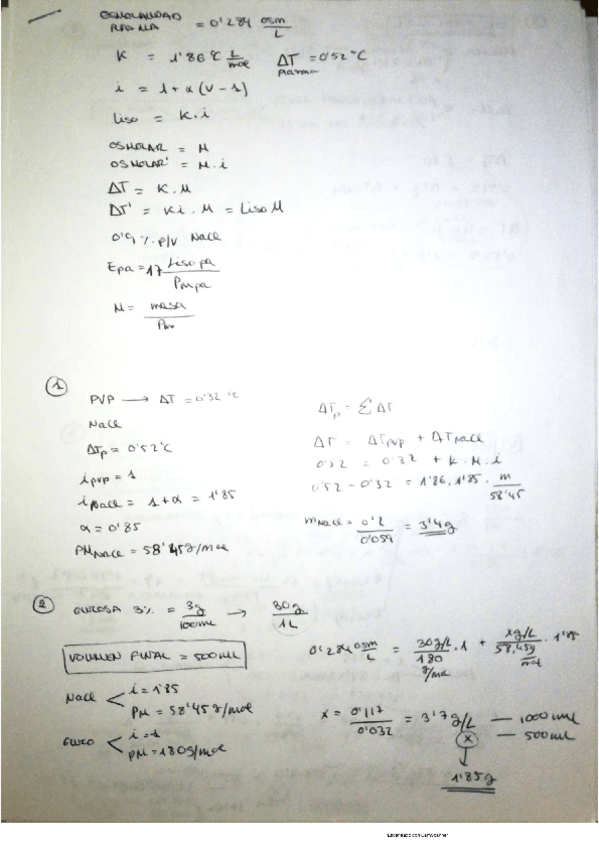 OSMOLARIDAD
PLASMA = 0'284 osm/L
K = 1'86 ºC L/mol ΔT plasma = 0'52 ºC
i = 1 + α (v - 1)
Liso = K · i
OSMOLAR = M
OSMOLAR' = M · i
ΔT = K · M
ΔT' = Ki · M = Liso M
0'9 % p/v NaCl
Epa = 17 Liso pa / Pm pa
M = masa / Pm
①
PVP → ΔT = 0'32 ºC
NaCl
ΔTp = 0'52 ºC
i pvp = 1
i NaCl = 1 + α = 1'85
α = 0'85
PM NaCl = 58'45 g/mol
ΔTp = Σ ΔT
ΔT = ΔT pvp + ΔT NaCl
0'52 = 0'32 + K · M · i
0'52 - 0'32 = 1'86 · 1'85 · m / 58'45
m NaCl = 0'2 / 0'059 = 3'4 g
②
GLUCOSA 3% = 3g / 100mL → 30g / 1L
VOLUMEN FINAL = 500 mL
NaCl < i = 1'85
PM = 58'45 g/mol
GLUCO < i = 1
PM = 180 g/mol
0'284 osm/L = 30 g/L / 180 g/mol · 1 + x g/L / 58,45 g/mol · 1'85
x = 0'117 / 0'032 = 3'7 g/L — 1000 mL
x — 500 mL
1'85 g
Escaneado con CamScanner